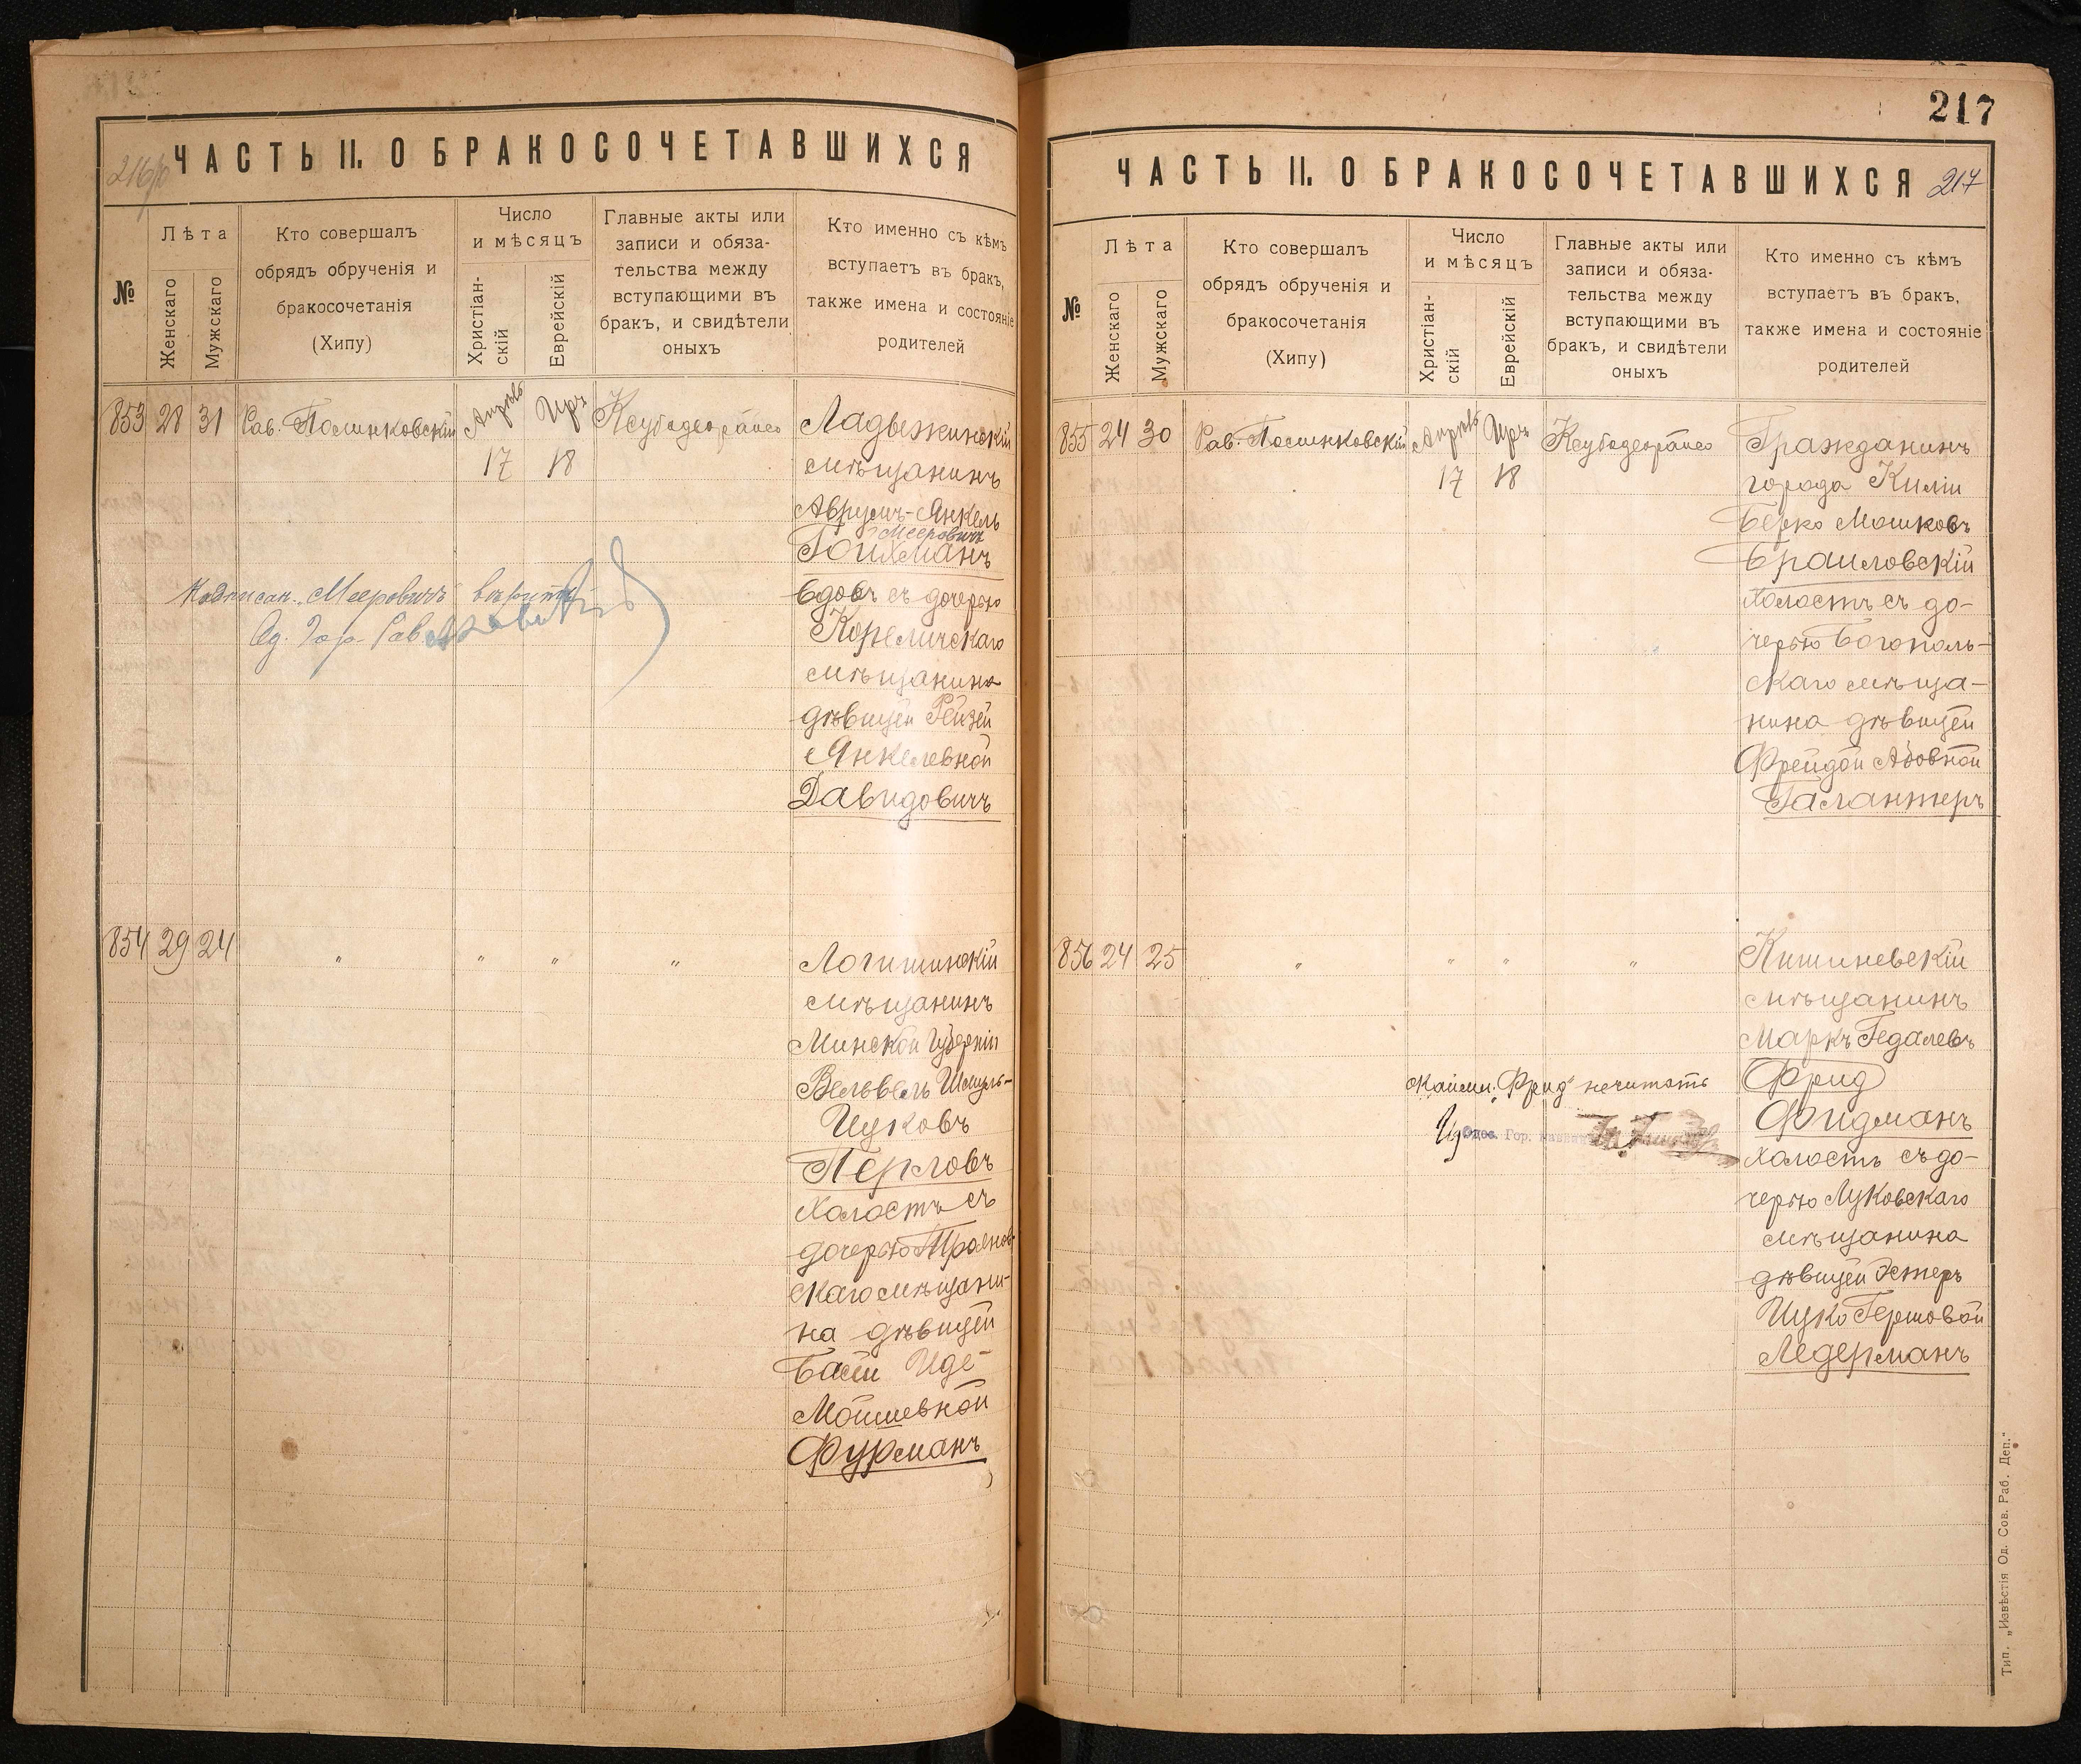 216/об
ЧАСТЬ II. О БРАКОСОЧЕТАВШИХСЯ
№
Лѣта
Женскаго
Мужскаго
Кто совершалъ
обрядъ обрученія и
бракосочетанія
(Хипу)
Число
и мѣсяцъ
Христіан-
скій
Еврейскій
Главные акты или
записи и обяза-
тельства между
вступающими въ
бракъ, и свидѣтели
оныхъ
Кто именно съ кѣмъ
вступаетъ въ бракъ,
также имена и состояніе
родителей
853 28 31 Рав. Полинковскій Апрѣль 17 Иръ 18
Ладыжинскій
мѣщанинъ
Аврумъ-Янкель
Мееровичъ
Гойхманъ
вдовъ съ дочерью
Корѣличскаго
мѣщанина
дѣвицей Рейзей
Янкелевной
Давидовичъ
Надписан. „Мееровичъ" вѣрить
Од. Гор. Рав
854 29 24 " " " "
Логишинскій
мѣщанинъ
Минской Губерніи
Вельвель Шмуль-
Ицковъ
Перловъ
Холостъ съ
дочерью Троянов-
скаго мѣщани-
на дѣвицей
Басей Иде-
Мойшевной
Фурманъ
217
ЧАСТЬ II. О БРАКОСОЧЕТАВШИХСЯ 217
№
Лѣта
Женскаго
Мужскаго
Кто совершалъ
обрядъ обрученія и
бракосочетанія
(Хипу)
Число
и мѣсяцъ
Христіан-
скій
Еврейскій
Главные акты или
записи и обяза-
тельства между
вступающими въ
бракъ, и свидѣтели
оныхъ
Кто именно съ кѣмъ
вступаетъ въ бракъ,
также имена и состояніе
родителей
855 24 30 Рав. Полинковскій Апрѣль 17 Иръ 18
Гражданинъ
города Киліи
Берко Мошковъ
Браиловскій
Холостъ съ до-
черью Богополь-
скаго мѣща-
нина дѣвицей
Фрейдой Абовной
Галантеръ
856 24 25 " " " "
Кишиневскій
мѣщанинъ
Маркъ Гедалевъ
Фрид
Фидманъ
Холостъ съ до-
черью Луковскаго
мѣщанина
дѣвицей Эстеръ
Ицко Гершовой
Ледерманъ
„Фрид" нечитать
Одес. Гор. Раввинъ
Тип. „Извѣстія Од. Сов. Раб. Деп."